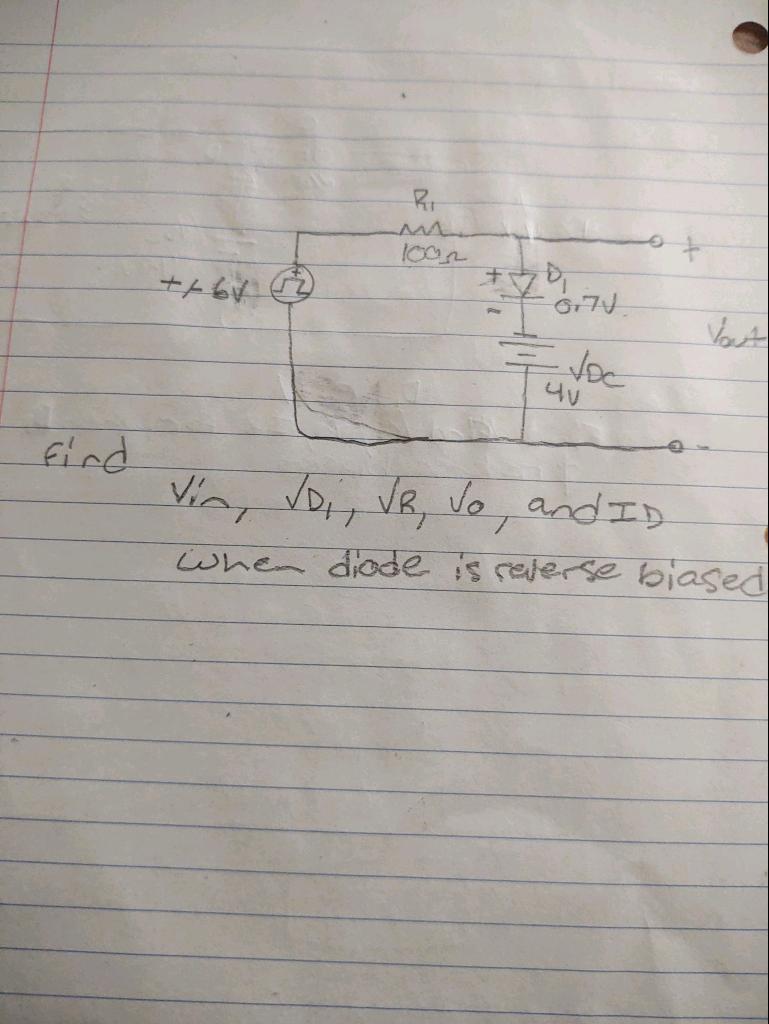 R1
100Ω
+
+/- 6V
+
D1
+
-
0.7V
Vout
VDC
4V
-
Find
Vin, VD1, VR, Vo, and ID
when diode is reverse biased